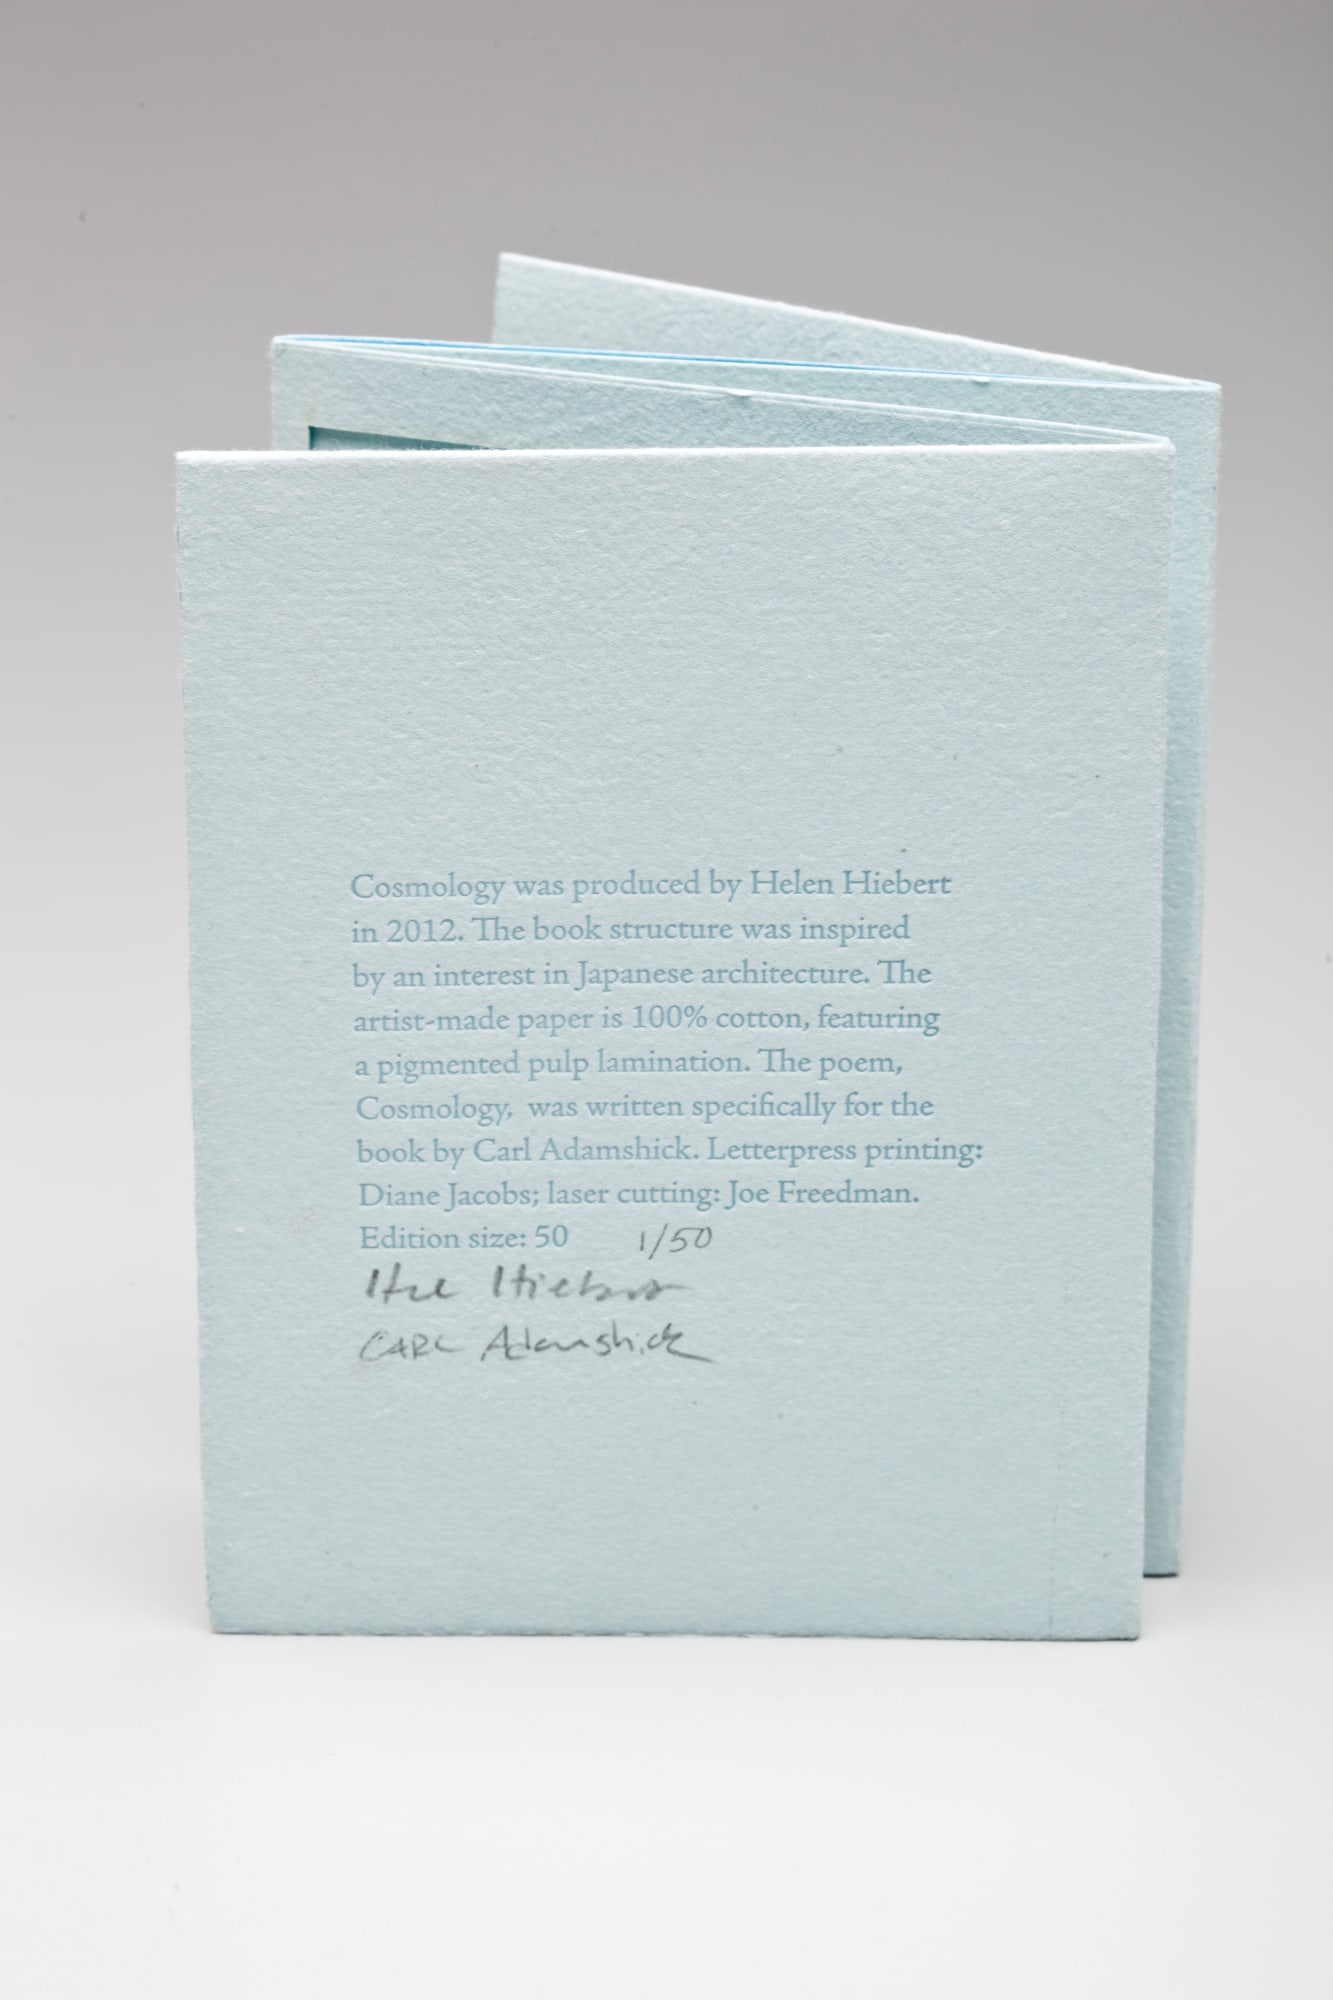 Cosmology was produced by Helen Hiebert
in 2012. The book structure was inspired
by an interest in Japanese architecture. The
artist-made paper is 100% cotton, featuring
a pigmented pulp lamination. The poem,
Cosmology, was written specifically for the
book by Carl Adamshick. Letterpress printing:
Diane Jacobs; laser cutting: Joe Freedman.
Edition size: 50 1/50
Hiebert
CARL Adamshick